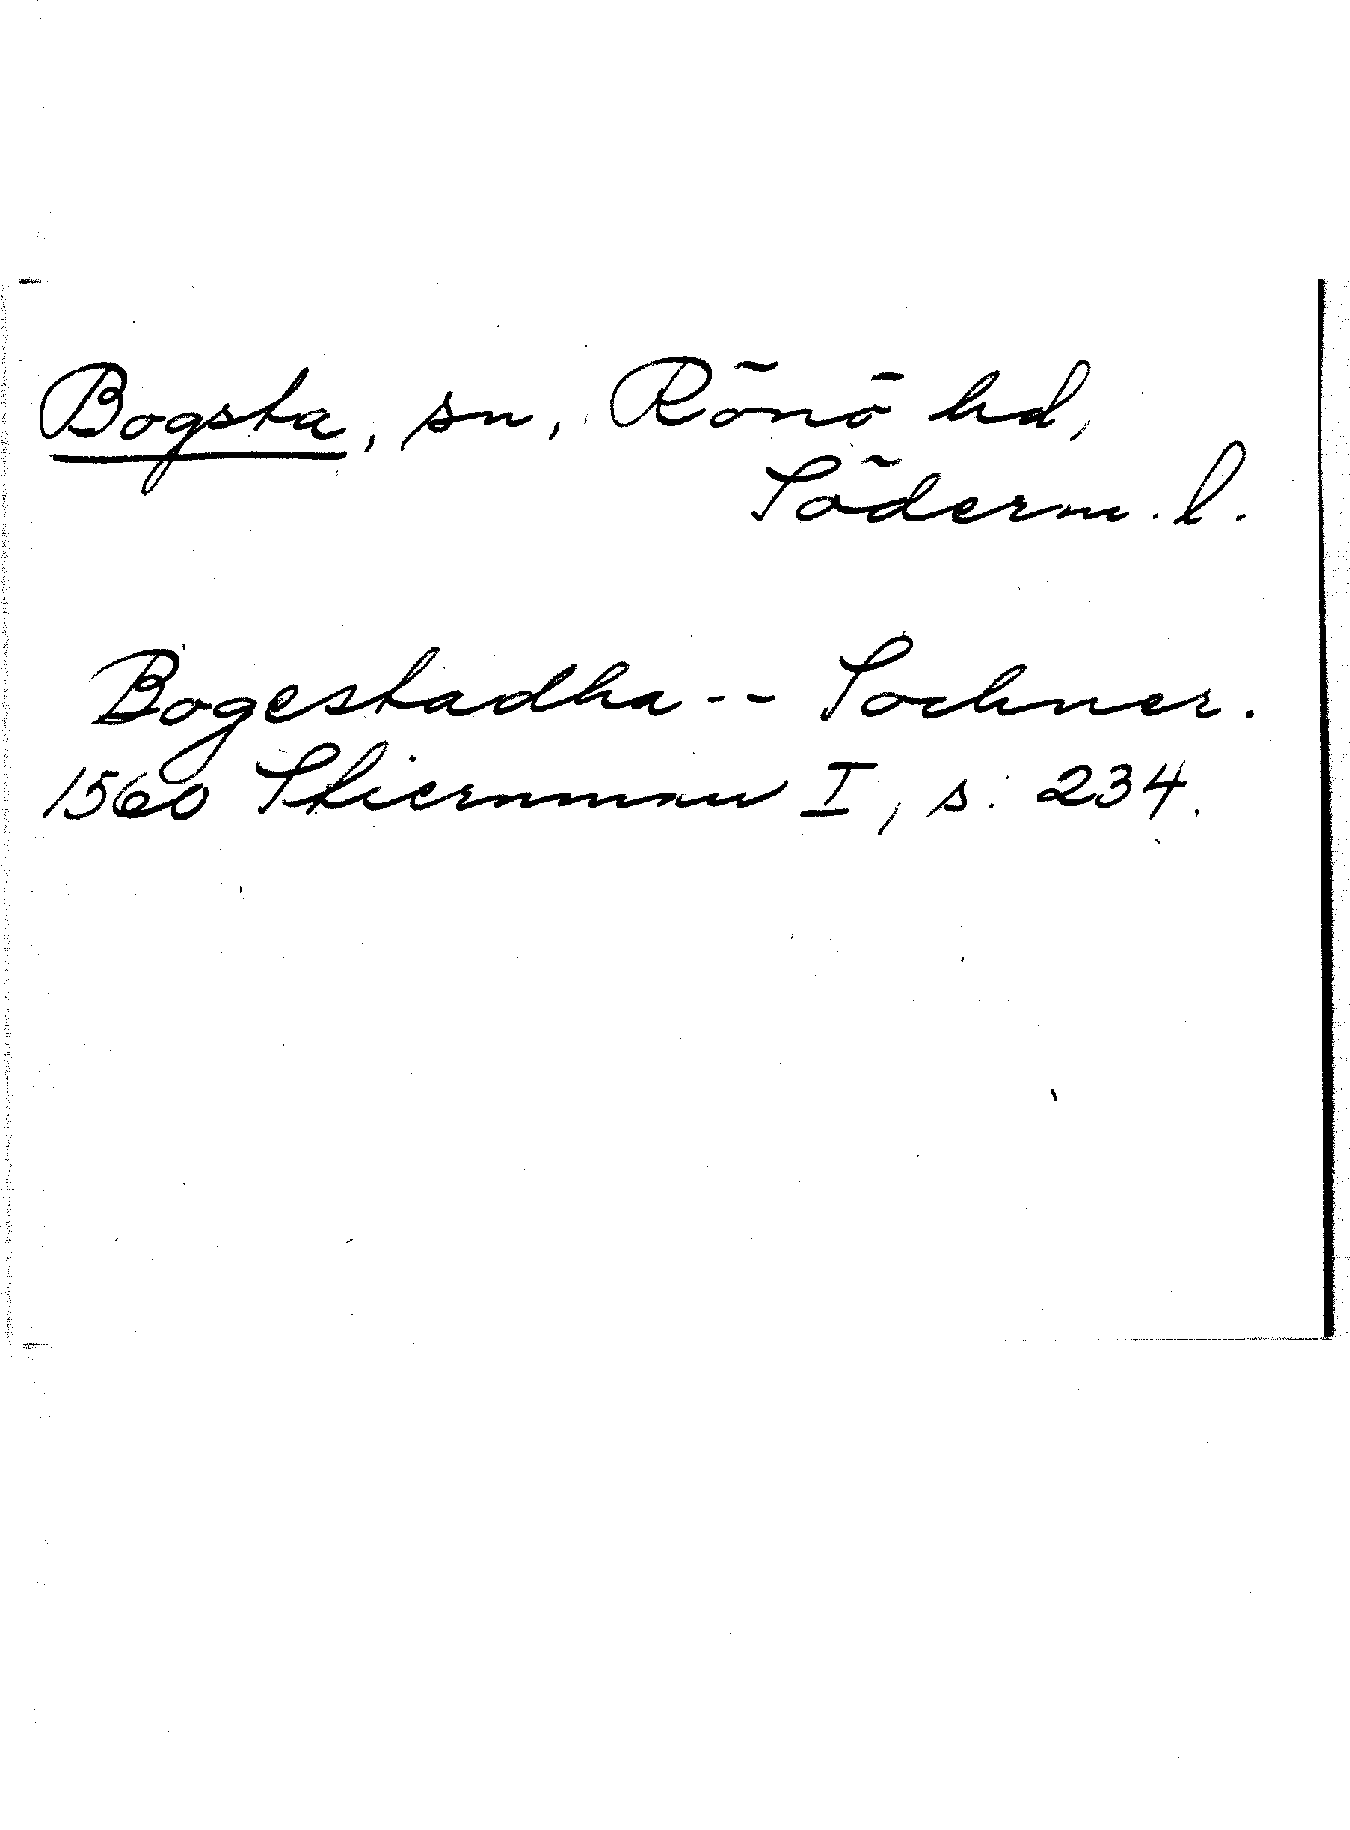 Bogsta, sn, Rönö hd,
Söderm. l.
Bogestadha -- Sochner.
1560 Stiernman I, s. 234.